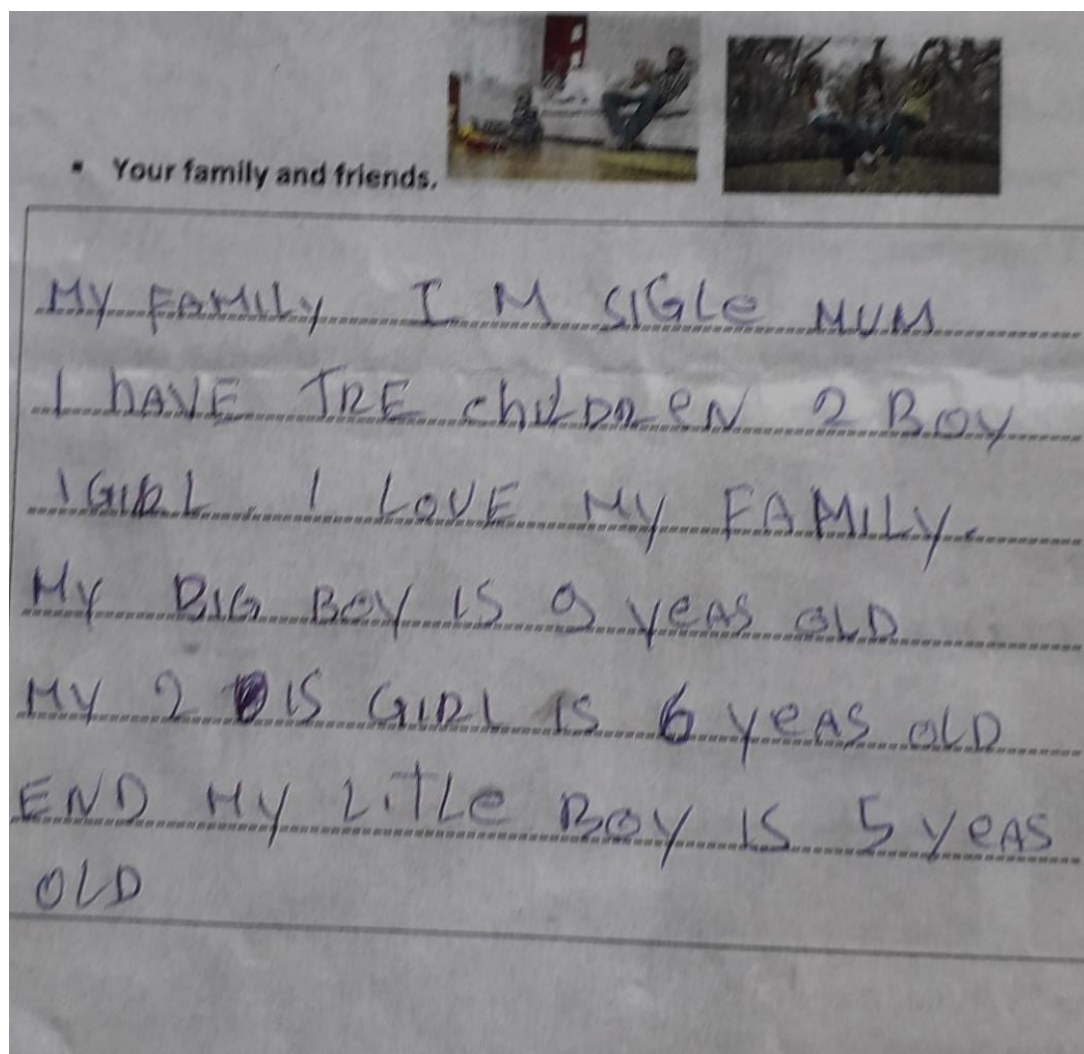 ▪ Your family and friends.
MY FAMILY I M SIGLE MUM
I hAVE TRE chILDREN 2 BOY
1 GIRL. I LOVE MY FAMILY.
MY BIG BOY IS 9 YeAS OLD
MY 2 IS GIRL IS 6 YeAS OLD
END MY LITLe BOY IS 5 YeAS
OLD